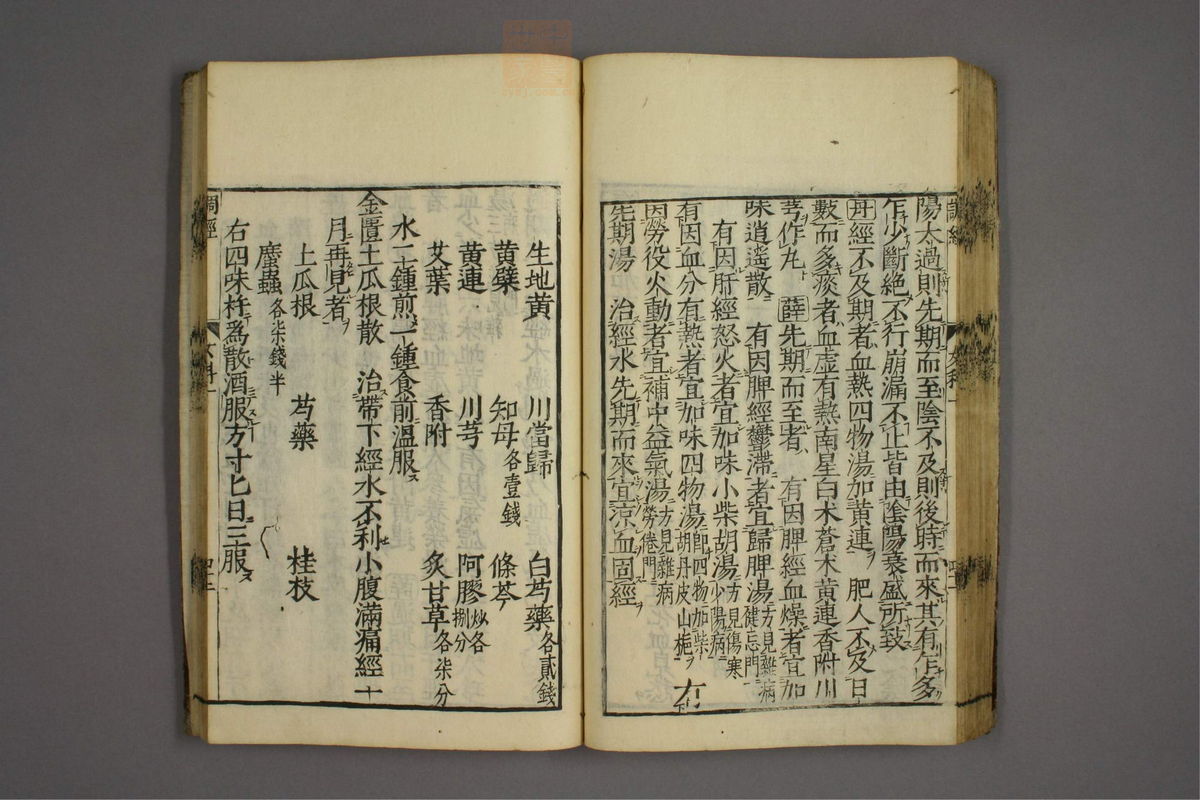 陽太過則先期而至陰不及則後時而來其有乍多
乍少斷絶不行崩漏不止皆由陰陽衰盛所致
丹經不及期者血熱四物湯加黄連 肥人不及日
數而多痰者血虛有熱南星白朮蒼朮黄連香附川
芎作丸 薛先期而至者 有因脾經血燥者宜加
味逍遙散 有因脾經鬱滯者宜歸脾湯方見雜病健忘門
有因肝經怒火者宜加味小柴胡湯方見傷寒少陽病
有因血分有熱者宜加味四物湯即四物加柴胡丹皮山梔 有
因勞役火動者宜補中益氣湯方見雜病勞倦門
先期湯 治經水先期而來宜凉血固經
生地黄 川當歸 白芍藥各貳錢
黄蘗 知母各壹錢 條芩
黄連 川芎 阿膠炒各捌分
艾葉 香附 炙甘草各柒分
水二鍾煎一鍾食前溫服
金匱土瓜根散 治帶下經水不利小腹滿痛經一
月再見者
土瓜根 芍藥 桂枝
䗪蟲各柒錢半
右四味杵為散酒服方寸匕日三服
調經
女科一
四十二